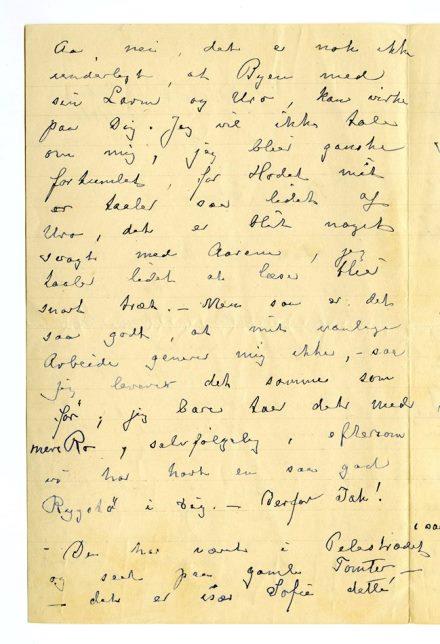 Aa, nei, det er nok ikke
underligt, at Byen med
sin Larm og Uro, kan virke
paa Dig. Jeg vil ikke tale
om mig, jeg blir ganske
fortumlet, for Hodet mit
er taaler saa lidet af
Uro, det er blit noget
svagt med Aarene, jeg
taaler lidet at læse blir
snart træt. — Men saa er det
saa godt, at mit vanlige
Arbeide generer mig ikke, — saa
jeg leverer det samme som
før, jeg bare taer det med
mere Ro, selvfølgelig, eftersom
vi har havt en saa god
Rygstø i Dig. — Derfor Tak!
- Du har været i Pelestrædet
og seet paa gamle Tomter —
— det er især Sofie dette